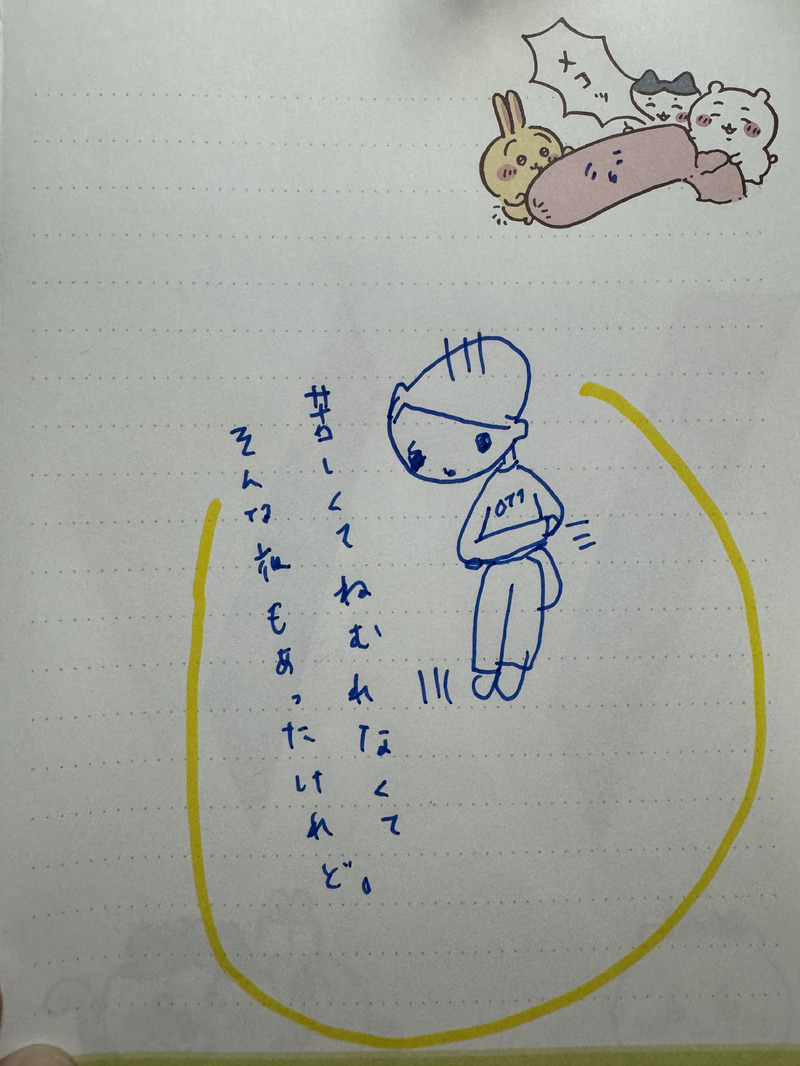 メコッ
苦しくてねむれなくて
そんな夜もあったけれど。